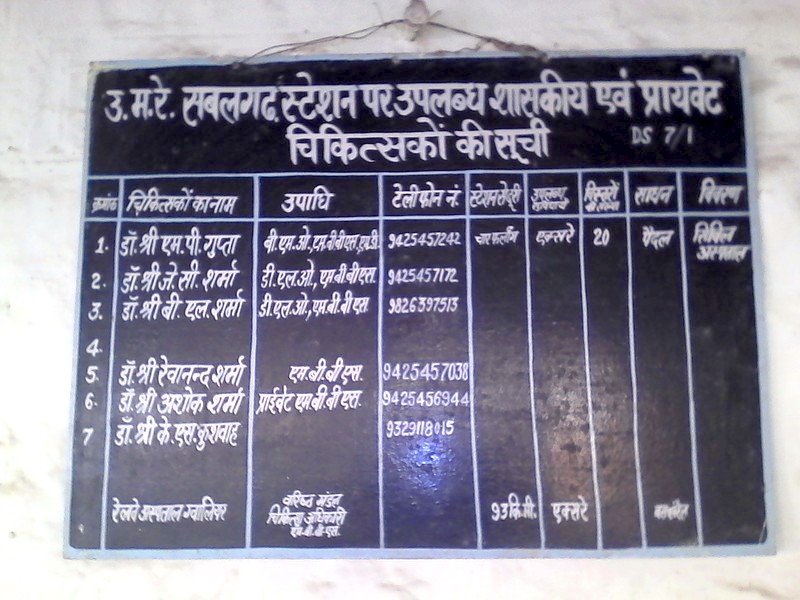 उ.म.रे. सबलगढ़ स्टेशन पर उपलब्ध शासकीय एवं प्रायवेट
चिकित्सकों की सूची DS 7/1
क्रमांक चिकित्सकों का नाम उपाधि टेलीफोन नं. स्टेशन से दूरी उपलब्ध साधन विवरण
1. डॉ. श्री एम.पी. गुप्ता बी.एम.ओ., एम.बी.बी.एस., एम.डी. 9425457242 चार फर्लांग एक्सरे 20 पैदल सिविल अस्पताल
2. डॉ. श्री जे. सी. शर्मा डी.एल.ओ., एम.बी.बी.एस. 9425457172
3. डॉ. श्री बी. एल. शर्मा डी.एल.ओ., एम.बी.बी.एस 9826397513
4.
5. डॉ. श्री रेवानन्द शर्मा एम.बी.बी.एस. 9425457038
6. डॉ. श्री अशोक शर्मा प्राईवेट एम.बी.बी.एस. 9425456944
7 डॉ. श्री के. एस. कुशवाह 9329118015
रेलवे अस्पताल ग्वालियर वरिष्ठ मंडल चिकित्सा अधिकारी एम.बी.बी.एस. 93 कि.मी. एक्सरे